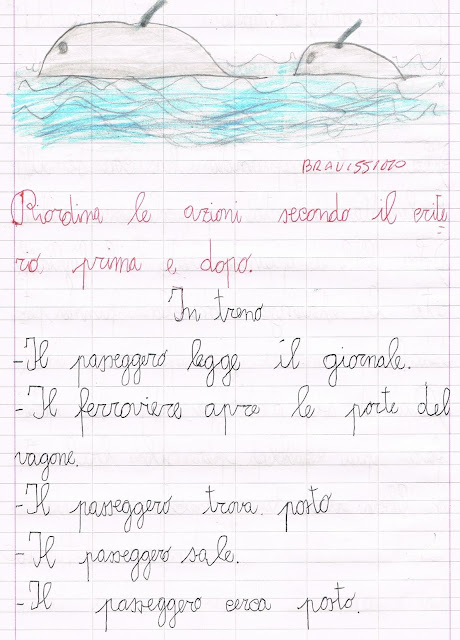 BRAVISSIMO
Riordina le azioni secondo il crite
rio prima e dopo.
In treno
-Il passeggero legge il giornale.
-Il ferroviere apre le porte del
vagone.
-Il passeggero trova. posto
-Il passeggero sale.
-Il passeggero cerca posto.